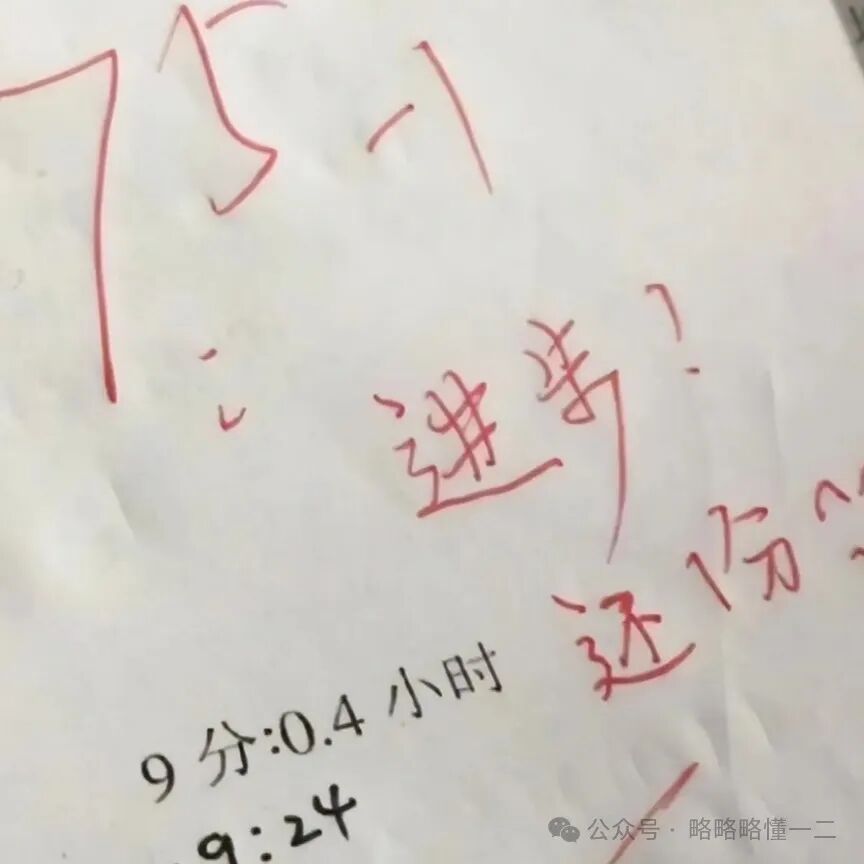 75-1
进步!
还份
9 分:0.4 小时
9:24
公众号 · 略略略懂一二